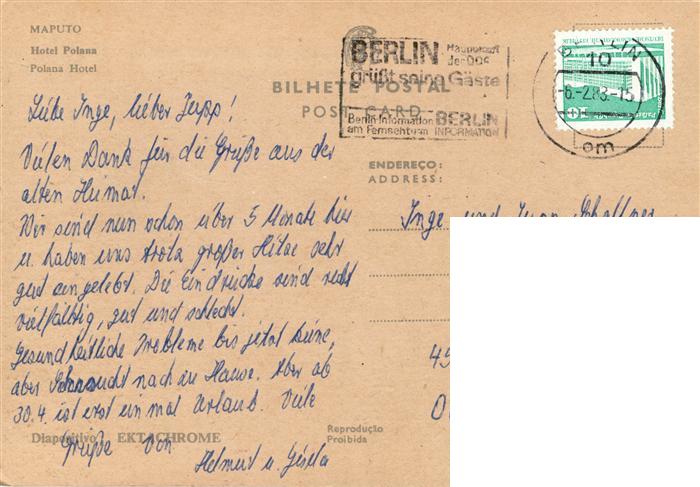 MAPUTO
Hotel Polana
Polana Hotel
BERLIN Hauptstadt
der DDR
grüßt seine Gäste
Berlin-Information
am Fernsehturm
BERLIN
INFORMATION
BERLIN
10
-6.-2.83.-15
om
BILHETE POSTAL
POST CARD
ENDEREÇO:
ADDRESS:
Liebe Inge, lieber Jupp!
Vielen Dank für die Grüße aus der
alten Heimat.
Wir sind nun schon über 5 Monate hier
u. haben uns trotz großer Hitze sehr
gut eingelebt. Die Eindrücke sind recht
vielfältig, gut und schlecht.
Gesundheitliche Probleme bis jetzt keine,
aber Sehnsucht nach zu Hause. Aber ab
30.4. ist erst einmal Urlaub. Viele
Grüße von
Helmut u. Gisela
Inge und
45
Diapositivo EKTACHROME
Reprodução
Proibida